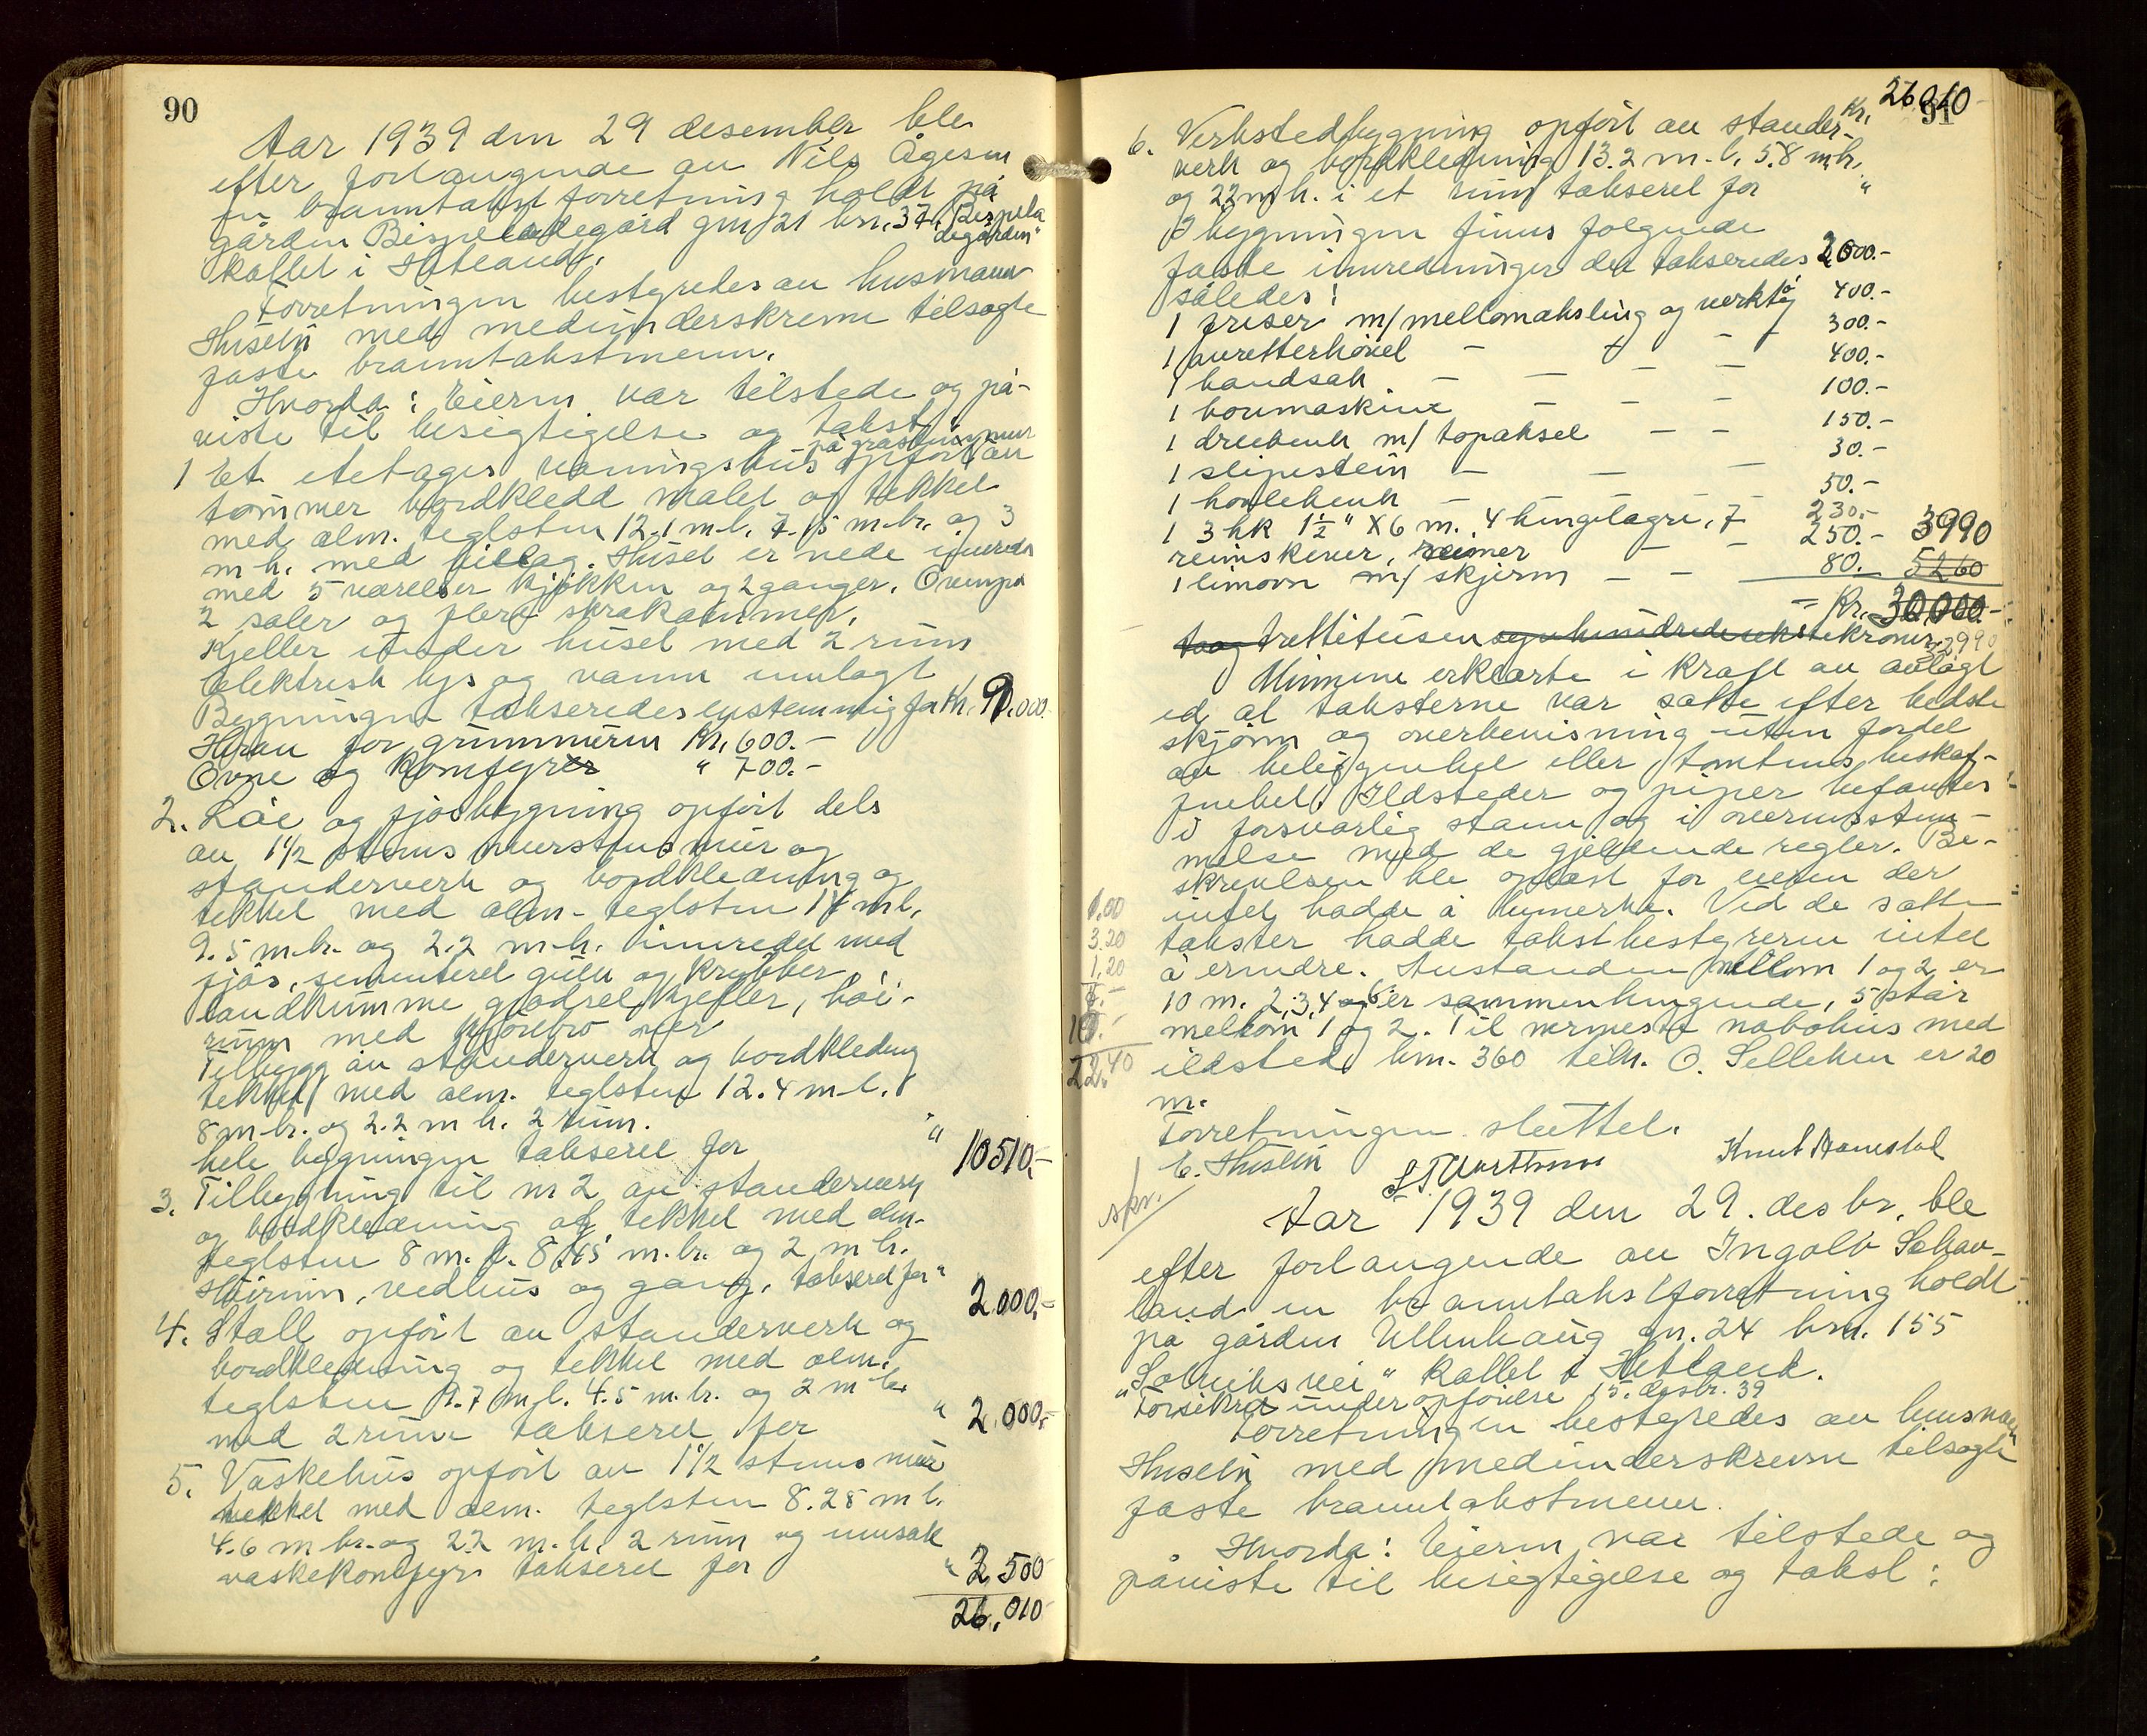 90
Aar 1939 den 29 desember ble
efter forlangende av Nils Ågesen
en branntakstforretning holdt på
gården Bispeladegård gnr 21 bnr. 37. "Bispela
degården"
kallet i Hetland.
Forretningen bestyredes av husmann
Husebø med medunderskrevne tilsagte
faste branntakstmenn.
Hvorda: Eieren var tilstede og på-
viste til besigtigelse og takst:
på gråstensmur
1 Et etetages våningshus opført av
tømmer bordkledd malet og tekket
med alm. teglsten 12.1 m.l. 7.15 m.br. og 3
m h. med pillag. Huset er nede innredet
med 5 værelser kjøkken og 2 ganger. Ovenpå
2 saler og flere skråkammer.
Kjeller under huset med 2 rum
Elektrisk lys og vann innlagt
Bygningen takseredes enstemmig for Kr. 9.000.
Herav for grunnmuren Kr. 600.-
Ovne og komfyrer " 700.-
2. Låe og fjøsbygning opført dels
av 1 1/2 stens murstensmur og
standerverk og bordkledning og
tekket med alm. teglsten 14 m l.
9.5 m.br. og 2.2 m.h. innredet med
fjøs, sementeret gulv og krybber,
landkumme gjødselkjeller, høi-
rum med kjørebro over
Tilbygg av standerverk og bordkledning
tekket med alm. teglsten 12.4 m.l.
8 m.br. og 2.2 m h. 2 rum.
hele bygningen takseret for " 10510,-
3. Tilbygning til nr 2 av standerverk
og bordkledning og tekket med alm.
teglsten 8 m. l. 8.45 m.br. og 2 m h.
rum, vedhus og gang, takseret for " 2.000,-
4. Stall opført av standerverk og
bordkledning og tekket med alm.
teglsten 9.7 m.l. 4.5 m.br. og 2 m h.
med 2 rum takseret for " 2.000,-
5. Vaskehus opført av 1 1/2 stens mur
tekket med alm. teglsten 8.28 m l.
4.6 m br. og 2.2 m.h. 2 rum og innsatt
vaskekomfyr takseret for " 2.500
26.010
26010
91
Kr.
6. Verkstedbygning opført av stander-
verk og bordkledning 13.2 m.l. 5.8 m br.
og 2.2 m h. i et rum takseret for "
I bygningen finns følgende
faste innredninger der takseredes 2000.-
således:
1 freser m/ mellomaksling og verktøj 400.-
1 avretterhøvel - - - 300.-
1 bandsak - - - - 400.-
1 boremaskine - - - 100.-
1 dreiebenk m/ topaksel - - 150.-
1 slipestein - - - 30.-
1 høvlebenk - - - 50.-
1 3 hk 1 1/2" x 6 m. 4 hengelagre, 7 230.-
reimskiver, reimer - - 250.- 3990
1 limovn m/ skjerm - - 80.- 5260
= Kr. 30,000.-
trettitusen kroner.
32990
Mennene erklærte i kraft av avlagt
ed at taksterne var satte efter bedste
skjønn og overbevisning uten fordel
av beliggenhet eller tomtens beskaf-
fenhet. Ildsteder og piper befantes
i forsvarlig stann og i overensstem-
melse med de gjeldende regler. Be-
skrivelsen ble oplest for eieren der
intet hadde å bemerke. Ved de satte
takster hadde takstbestyreren intet
å erindre. Avstanden mellom 1 og 2 er
10 m. 2, 3, 4 og 6 er sammenhengende, 5 står
mellom 1 og 2. Til nermeste nabohus med
ildsted bnr. 360 tilh. O. Selleken er 20
m.
1.00
3.20
1.20
22.40
Forretningen sluttet.
E. Husebø Knut Arnestad
skr.
Aar 1939 den 29. desbr. ble
efter forlangende av Ingolv Schav-
land en branntakstforretning holdt
på gården Ullenhaug gn. 24 bnr. 155
"Solviksvei" kallet i Hetland.
Forsikret under opførelse 15. desbr. 39
Forretningen bestyredes av husmann
Husebø med medunderskrevne tilsagte
faste branntakstmenn.
Hvorda: Eieren var tilstede og
påviste til besigtigelse og takst: